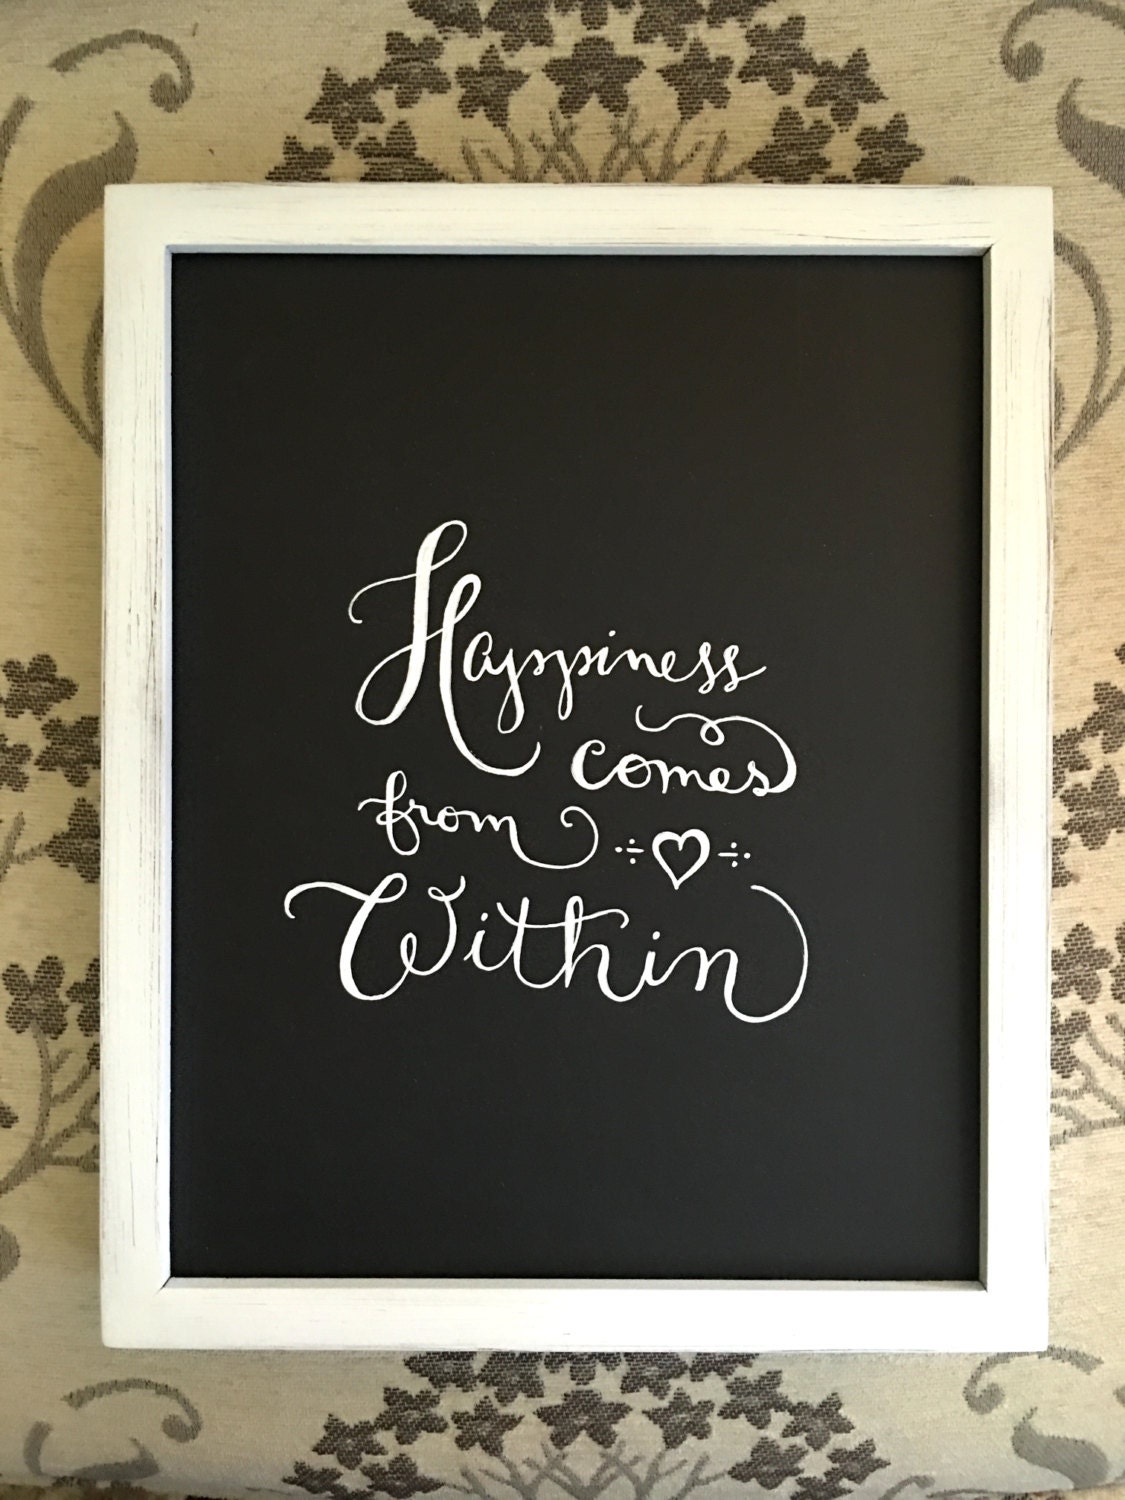 Happiness
comes
from
Within